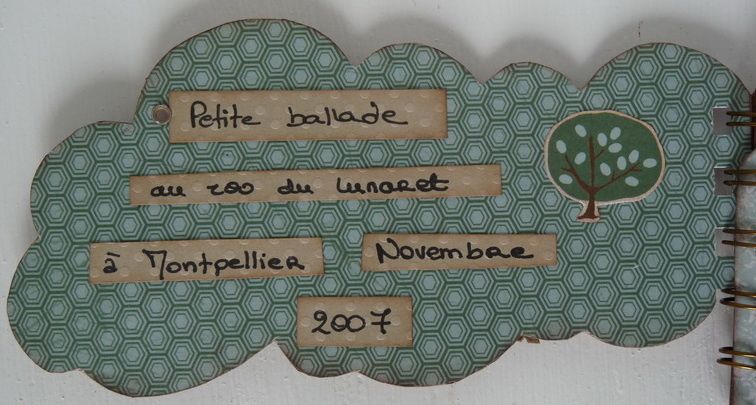 Petite ballade
au zoo du Lunaret
à Montpellier Novembre
2007